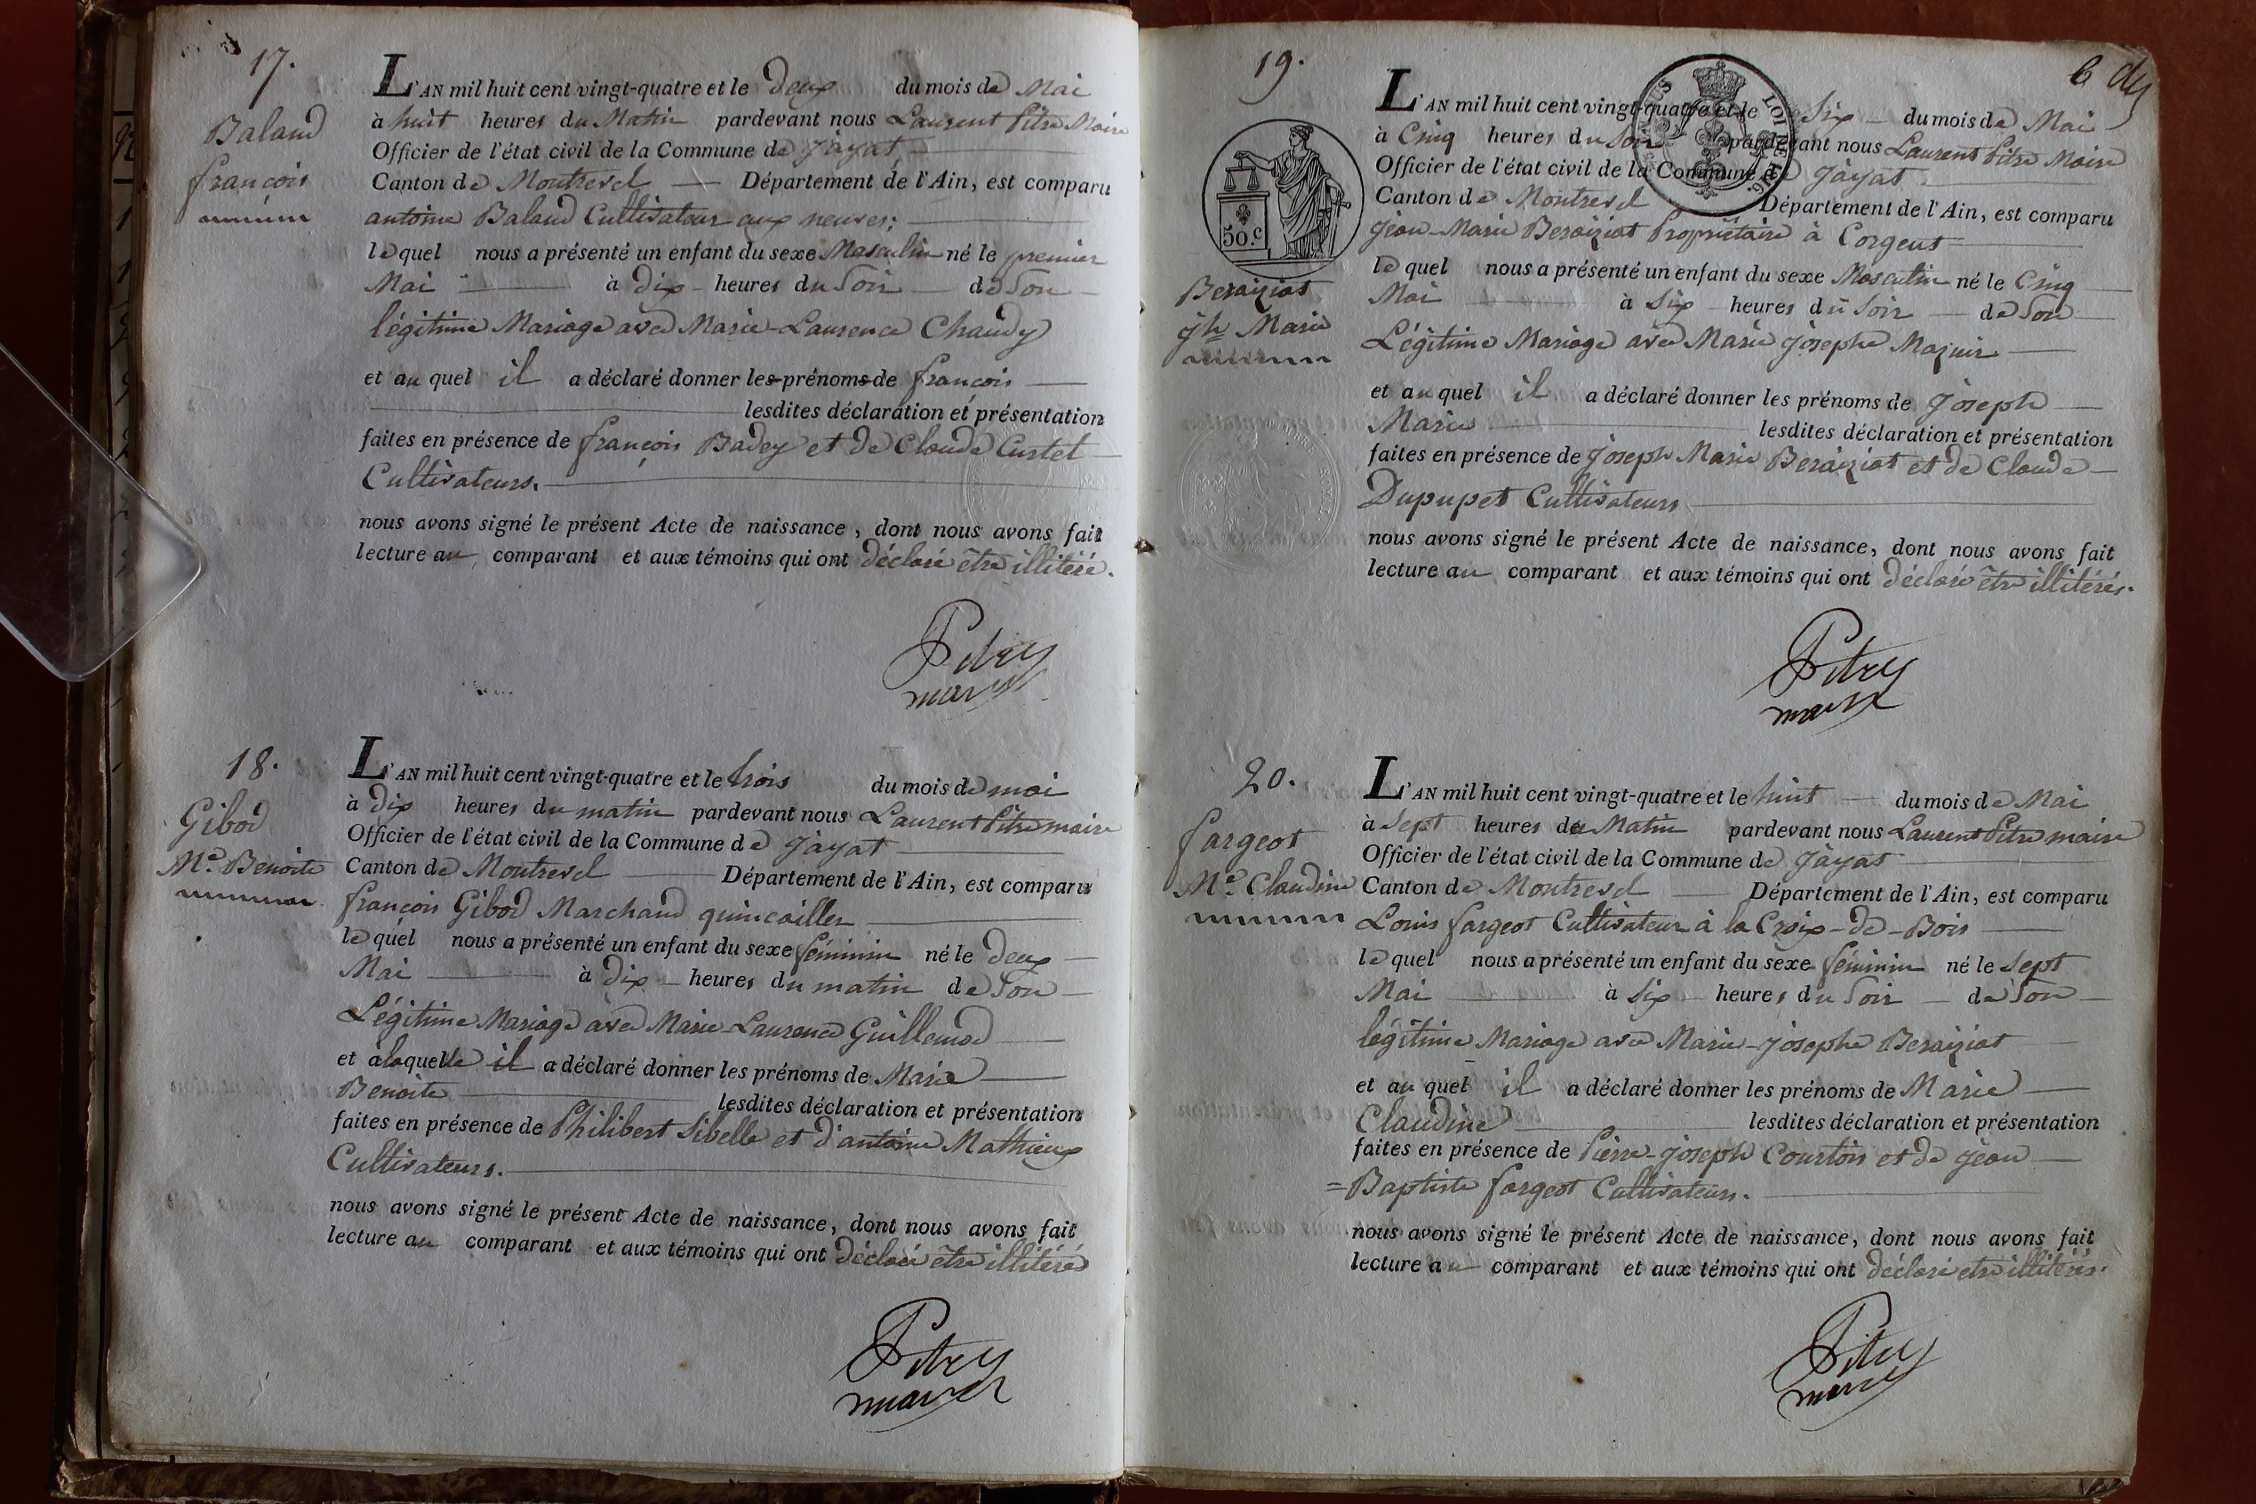 17.
Baland
françois
L'AN mil huit cent vingt-quatre et le deux du mois de Mai
à huit heures du Matin pardevant nous Laurent Pitre Maire
Officier de l'état civil de la Commune de Jayat
Canton de Montrevel Département de l'Ain, est comparu
antoine Baland Cultivateur aux neuves;
lequel nous a présenté un enfant du sexe Masculin né le premier
Mai à dix heures du Soir de Son
légitime Mariage avec Marie-Laurence Chaudy
et au quel il a déclaré donner les prénoms de françois
lesdites déclaration et présentation
faites en présence de françois Badey et de Claude Curtet
Cultivateurs.
nous avons signé le présent Acte de naissance, dont nous avons fait
lecture au comparant et aux témoins qui ont déclaré être illitéré.
Pitre
maire
18.
Gibod
Me. Benoite
L'AN mil huit cent vingt-quatre et le trois du mois de mai
à dix heures du matin pardevant nous Laurent Pitre maire
Officier de l'état civil de la Commune de Jayat
Canton de Montrevel Département de l'Ain, est comparu
françois Gibod Marchand quincailler
lequel nous a présenté un enfant du sexe féminin né le deux
Mai à dix heures du matin de Son
Légitime Mariage avec Marie-Laurence Guillemod
et à laquelle il a déclaré donner les prénoms de Marie
Benoite lesdites déclaration et présentation
faites en présence de Philibert Sibelle et d'antoine Mathieux
Cultivateurs.
nous avons signé le présent Acte de naissance, dont nous avons fait
lecture au comparant et aux témoins qui ont déclaré être illitérés
Pitre
maire
6
19.
50.c
Beraiziat
jh Marie
L'AN mil huit cent vingt-quatre et le Six du mois de Mai
à Cinq heures du Soir pardevant nous Laurent Pitre Maire
Officier de l'état civil de la Commune de Jayat
Canton de Montrevel Département de l'Ain, est comparu
Jean-Marie Beraiziat Propriétaire à Corgent
lequel nous a présenté un enfant du sexe Masculin né le Cinq
Mai à Six heures du Soir de Son
Légitime Mariage avec Marie josephe Mazuir
et au quel il a déclaré donner les prénoms de Joseph
Marie lesdites déclaration et présentation
faites en présence de Joseph Marie Beraiziat et de Claude
Dupupet Cultivateurs
nous avons signé le présent Acte de naissance, dont nous avons fait
lecture au comparant et aux témoins qui ont déclaré être illitérés.
Pitre
maire
20.
fargeot
Me. Claudine
L'AN mil huit cent vingt-quatre et le huit du mois de Mai
à Sept heures du Matin pardevant nous Laurent Pitre maire
Officier de l'état civil de la Commune de Jayat
Canton de Montrevel Département de l'Ain, est comparu
Louis fargeot Cultivateur à la Croix-de-Bois
lequel nous a présenté un enfant du sexe féminin né le Sept
Mai à Six heures du Soir de Son
légitime Mariage avec Marie-josephe Beraiziat
et au quel il a déclaré donner les prénoms de Marie
Claudine lesdites déclaration et présentation
faites en présence de Pierre-joseph Courtois et de jean
=Baptiste fargeot Cultivateurs.
nous avons signé le présent Acte de naissance, dont nous avons fait
lecture au comparant et aux témoins qui ont déclaré etre illitérés.
Pitre
maire